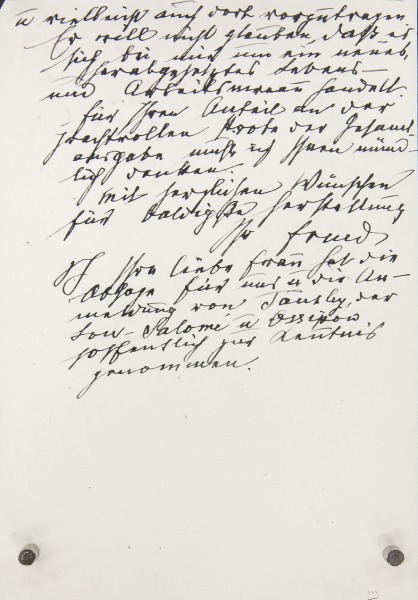 u vielleicht auch dort vorzutragen.
Er will nicht glauben, daß es
sich bei mir um ein neues,
herabgesetztes Lebens-
und Arbeitsniveau handelt.
Für Ihren Anteil an der
prachtvollen Note der Gesamt-
ausgabe muß ich Ihnen münd-
lich danken.
Mit herzlichen Wünschen
für baldigste Herstellung
Ihr Freud
Ihre liebe Frau hat die
Absage für uns u die An-
meldung von Tansley, der
Lou-Salomé u Ossipow
hoffentlich zur Kenntnis
genommen.